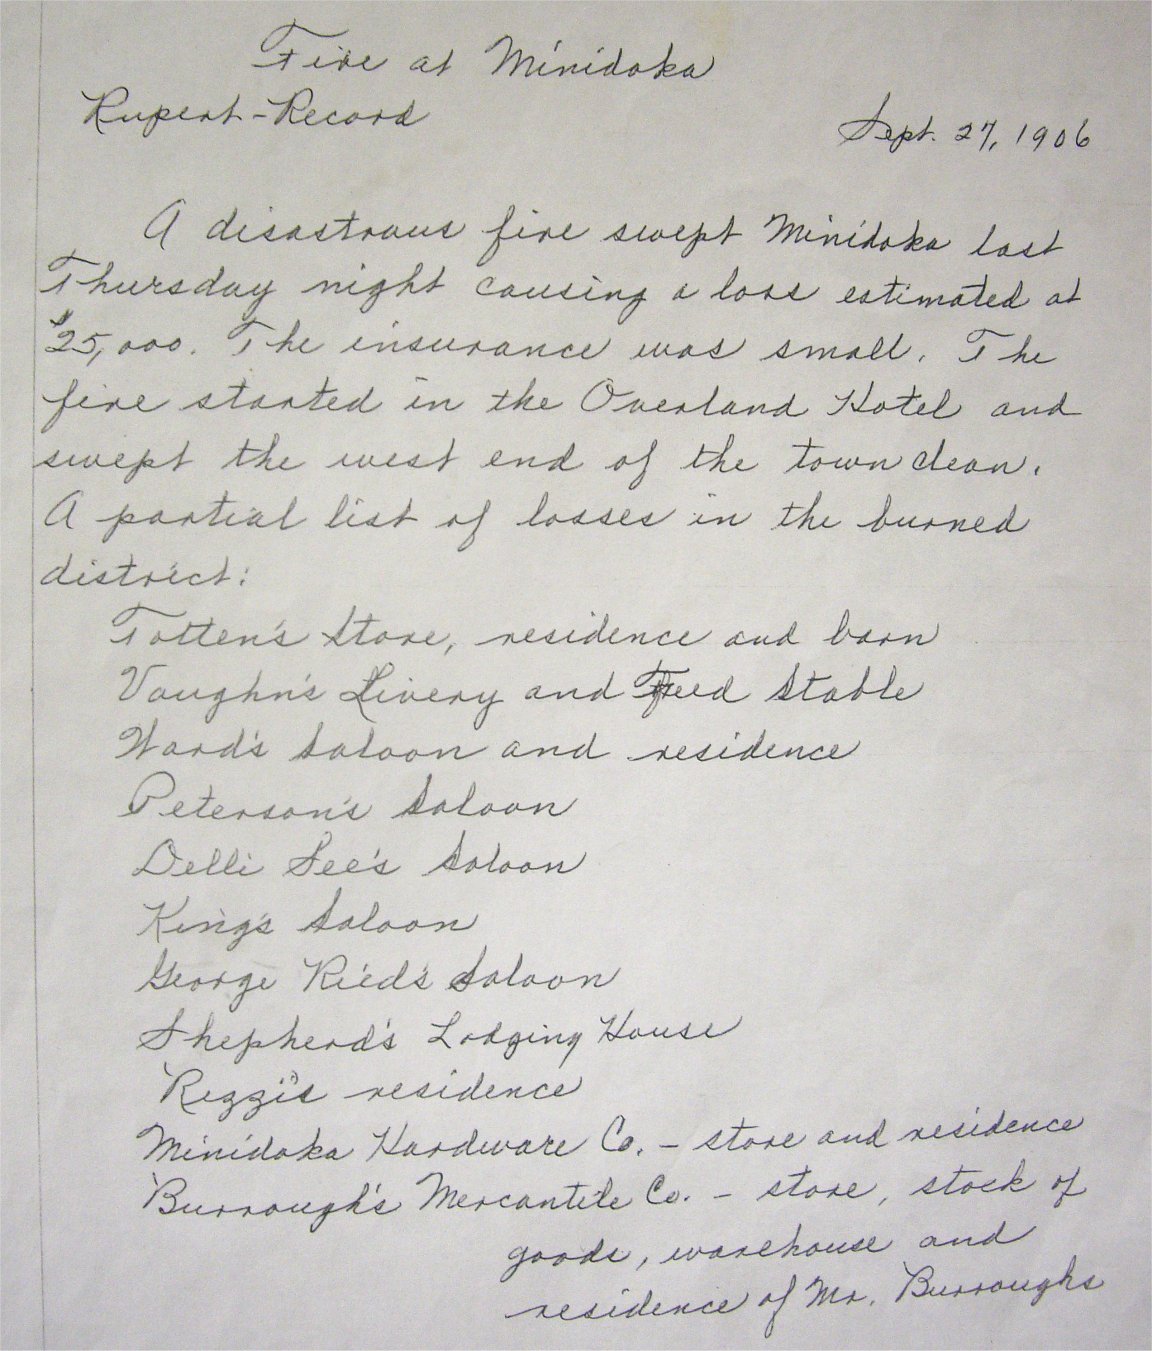 Fire at Minidoka
Rupert-Record
Sept. 27, 1906
A disastrous fire swept Minidoka last
Thursday night causing a loss estimated at
$25,000. The insurance was small. The
fire started in the Overland Hotel and
swept the west end of the town clean.
A partial list of losses in the burned
district:
Totten's Store, residence and barn
Vaughn's Livery and Feed Stable
Ward's Saloon and residence
Peterson's Saloon
Delli See's Saloon
King's Saloon
George Ried's Saloon
Shepherd's Lodging House
Rizzi's residence
Minidoka Hardware Co. - store and residence
Burrough's Mercantile Co. - store, stock of
goods, warehouse and
residence of Mr. Burroughs